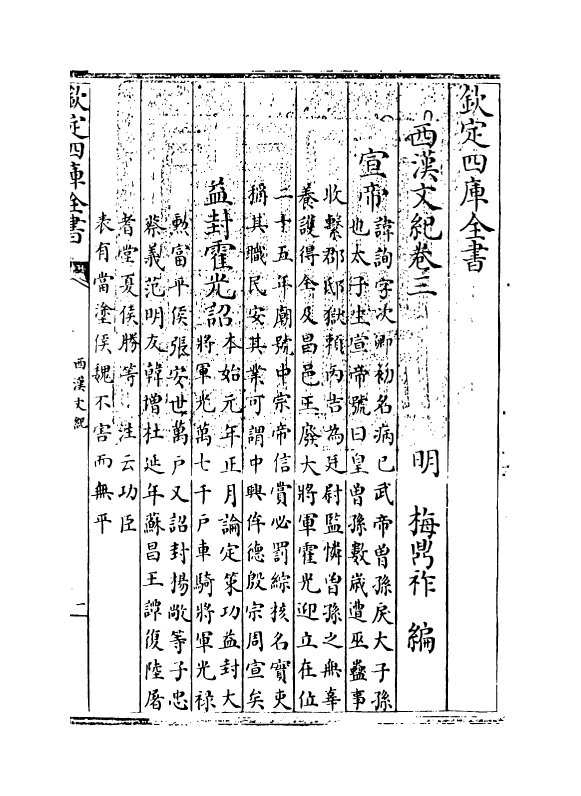 欽定四庫全書
西漢文紀卷三
明 梅鼎祚 編
宣帝
諱詢字次卿初名病已武帝曾孫戾太子孫
也太子生宣帝號曰皇曾孫數歳遭巫蠱事
收繫郡邸獄頼丙吉為廷尉監憐曾孫之無辜
養護得全及昌邑王廢大將軍霍光迎立在位
二十五年廟號中宗帝信賞必罰綜核名實吏
稱其職民安其業可謂中興侔德殷宗周宣矣
益封霍光詔
本始元年正月論定策功益封大
將軍光萬七千戶車騎將軍光禄
勲富平侯張安世萬戶又詔封楊敞等子忠
蔡義范明友韓增杜延年蘇昌王譚復陸屠
耆堂夏侯勝等 注云功臣
表有當塗侯魏不害而無平
欽定四庫全書
西漢文紀